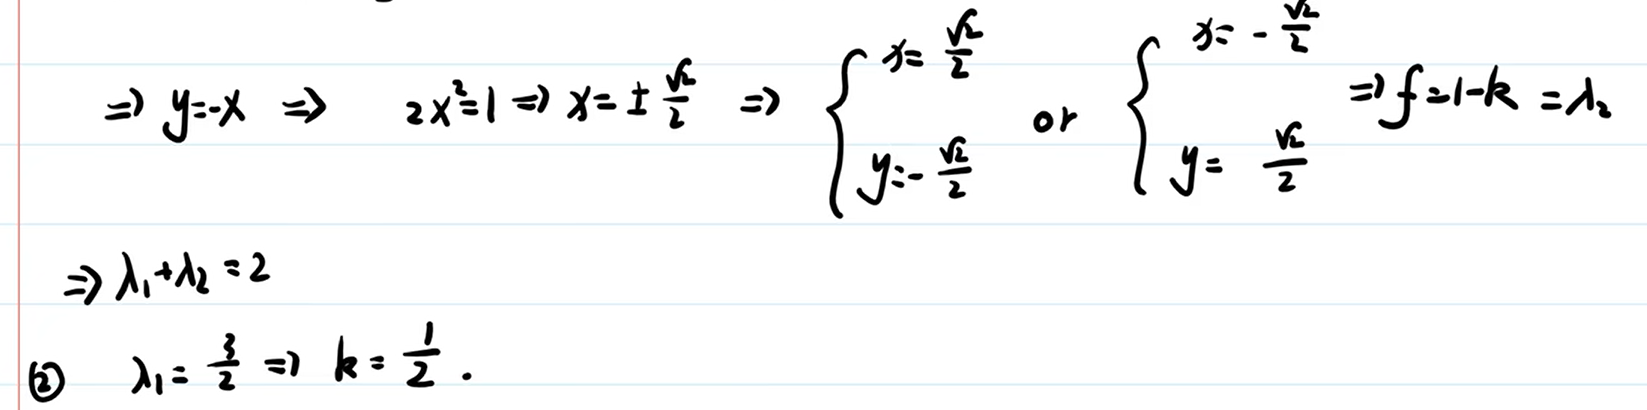 ⇒ y=-x ⇒ 2x²=1 ⇒ x=±√2/2 ⇒ { x=√2/2, y=-√2/2 or { x=-√2/2, y=√2/2 ⇒ f=1-k=λ₂
⇒ λ₁+λ₂=2
② λ₁=3/2 ⇒ k=1/2.